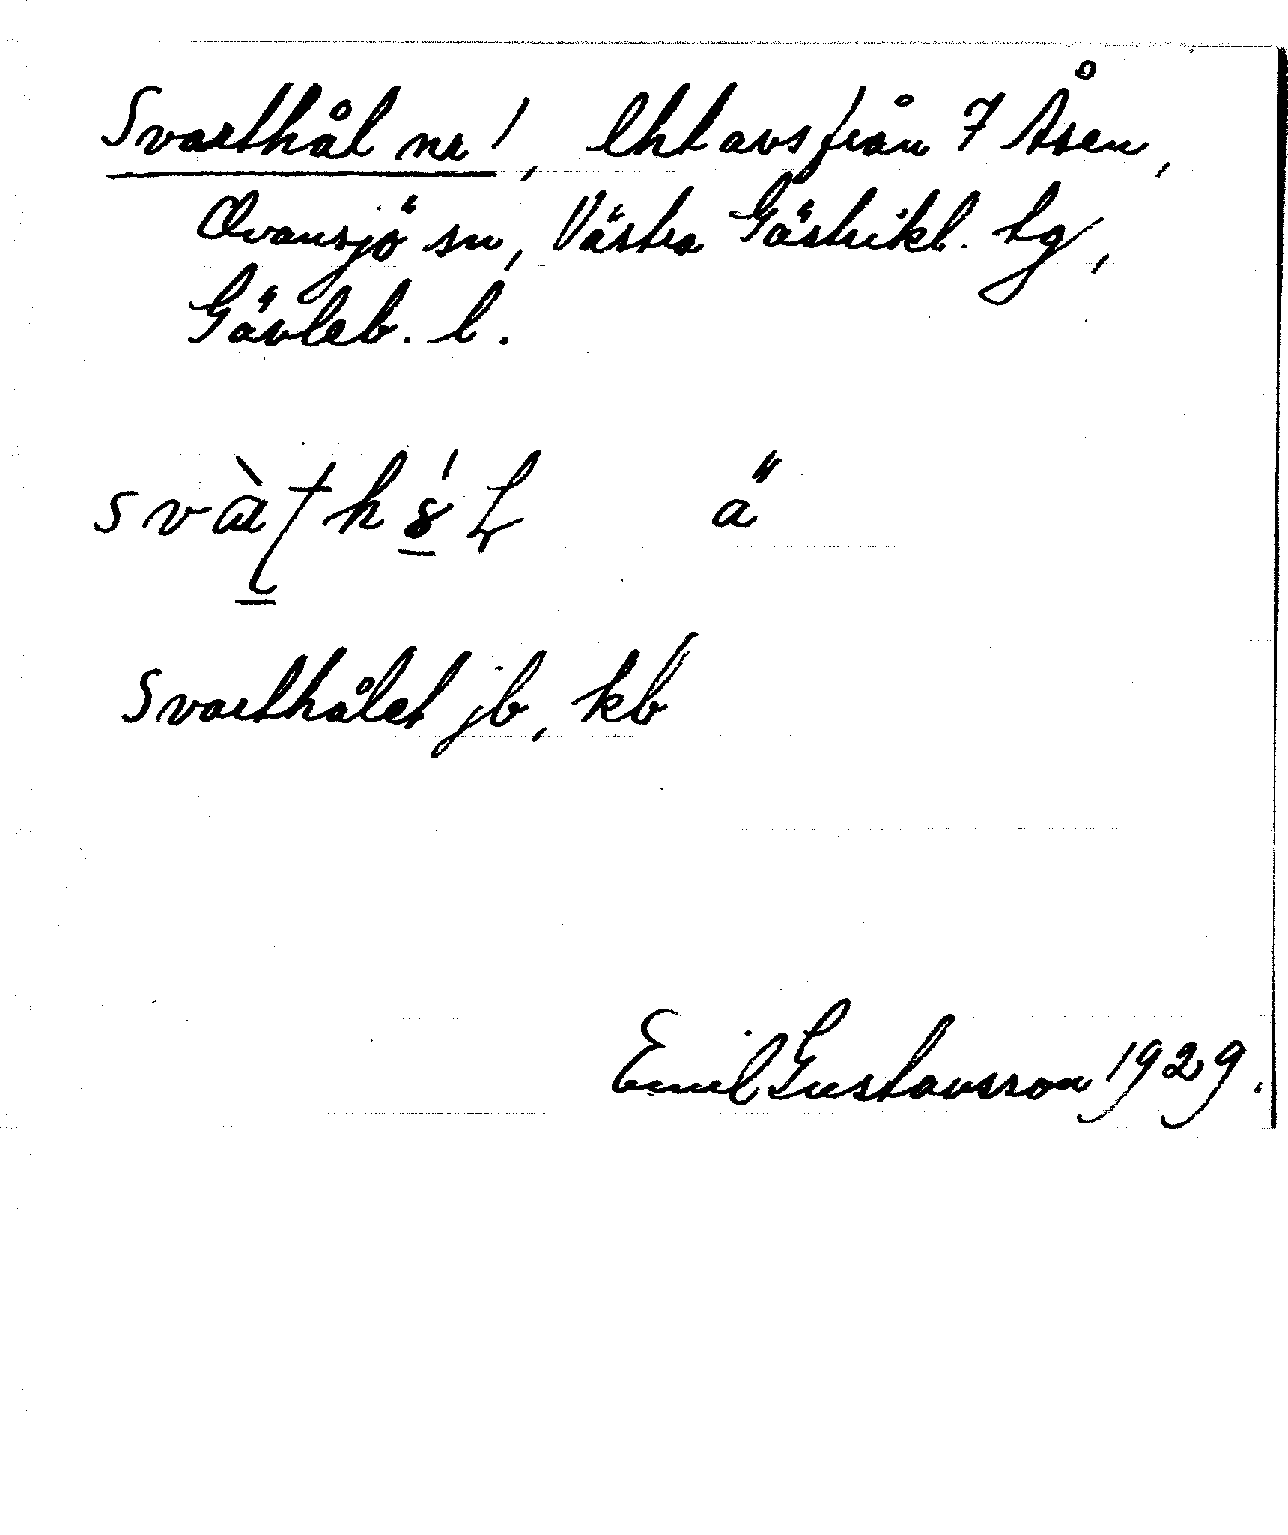 Svarthål nr 1, lht avs från 7 Åsen,
Ovansjö sn, Västra Gästrikl. tg,
Gävleb. l.
ä
Svarthålet jb, kb
Emil Gustavsson 1929.